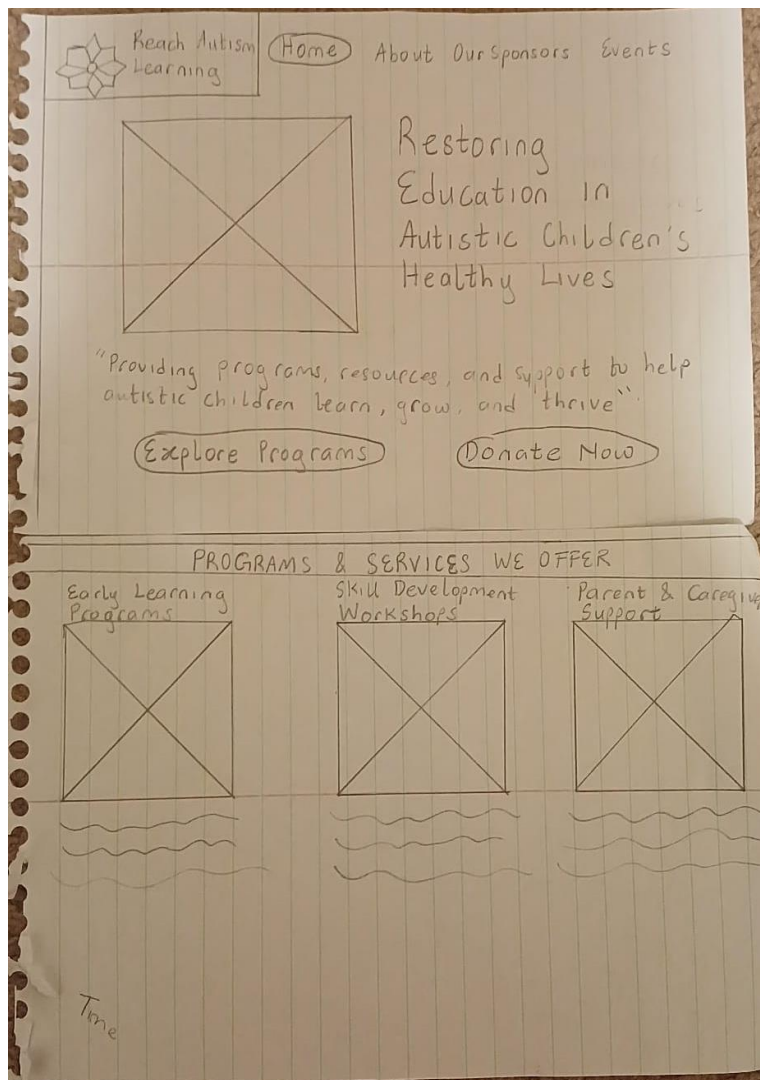 Reach Autism
Learning
Home About Our Sponsors Events
Restoring
Education In
Autistic Children's
Healthy Lives
"Providing programs, resources, and support to help
autistic children learn, grow, and thrive".
Explore Programs Donate Now
PROGRAMS & SERVICES WE OFFER
Early Learning
Programs
Skill Development
Workshops
Parent & Caregive
Support
Time